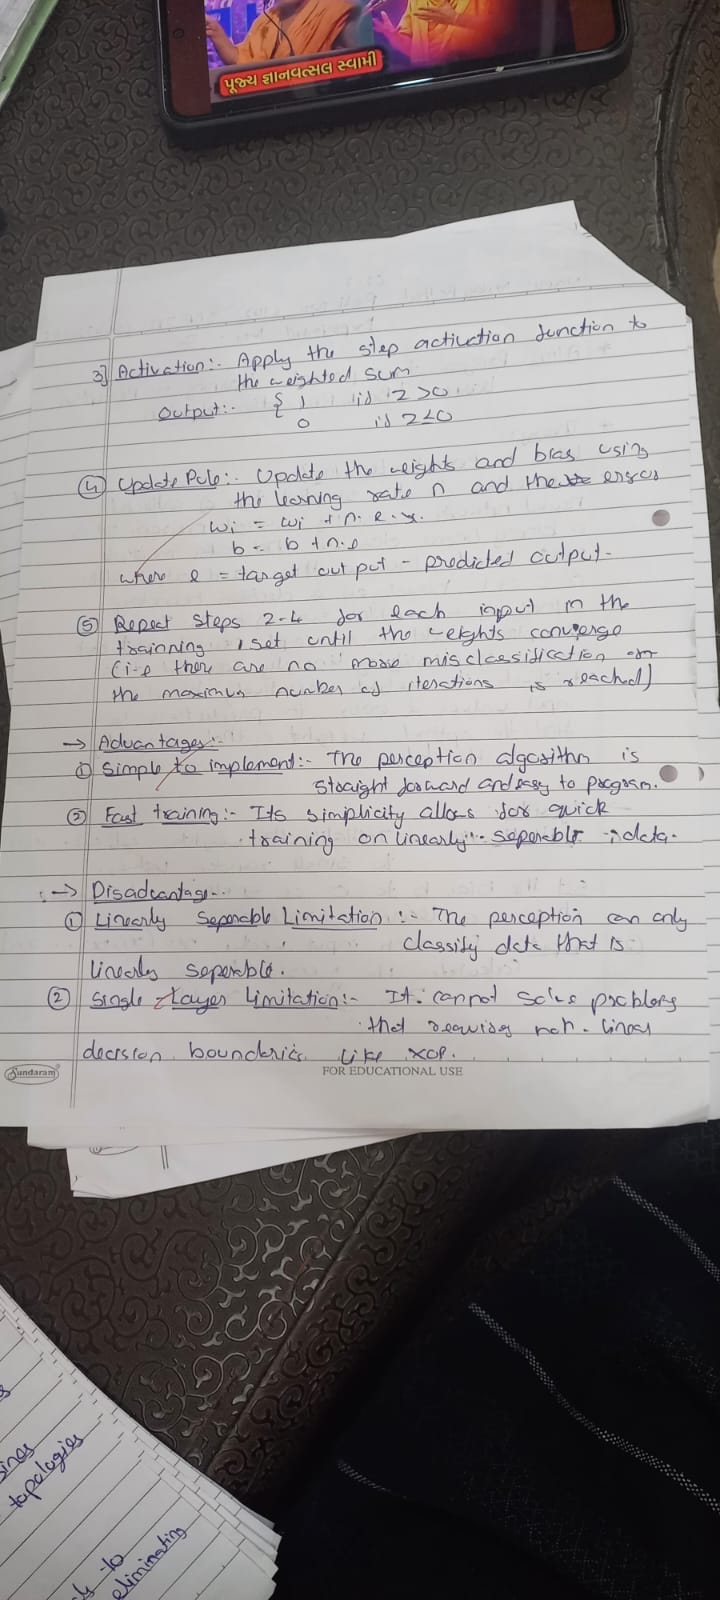 પૂજ્ય જ્ઞાનવત્સલ સ્વામી
3] Activation:- Apply the step activation function to
the weighted sum
Output:- { 1 if z >0
0 if z ≤0
④ Update Rule:- Update the weights and bias using
the learning rate n and the error
wi = wi + n. e. x.
b = b + n.e
where e = target out put - predicted output.
⑤ Repeat steps 2-4 for each input in the
trainning set until the weights converge
(i.e there are no more misclassification or
the maximum number of iterations is reached)
→ Advantages:-
① Simple to implement:- The perception algorithm is
straight forward and easy to program.
② Fast training:- Its simplicity allows for quick
training on linearly seperable data.
→ Disadvantage:-
① Linearly Seperable Limitation :- The perception can only
classify data that is
linearly seperable.
② Single Layer Limitation:- It cannot solve problems
that requires non-linear
decision boundaries like XOR.
Sundaram
FOR EDUCATIONAL USE
topologies
to
eliminating